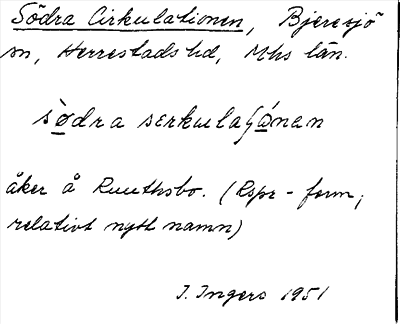 Södra Cirkulationen, Bjeresjö
sn, Herrestads hd, Mhs län.
sö̀dra serkulaʃónen
åker å Ruuthsbo. (Rspr-form,
relativt nytt namn)
I. Ingers 1951